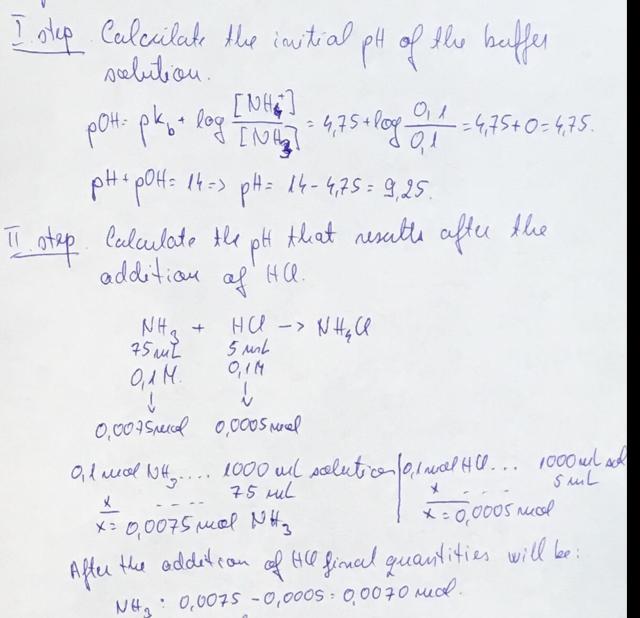 I step. Calculate the initial pH of the buffer
solution.
pOH = pKb + log [NH4+]/[NH3] = 4,75 + log 0,1/0,1 = 4,75 + 0 = 4,75.
pH + pOH = 14 => pH = 14 - 4,75 = 9,25.
II step. Calculate the pH that results after the
addition of HCl.
NH3 + HCl -> NH4Cl
75 mL 5 mL
0,1 M. 0,1 M
↓ ↓
0,0075 mol 0,0005 mol
0,1 mol NH3 .... 1000 mL solution | 0,1 mol HCl ... 1000 mL sol
x .... 75 mL | x ... 5 mL
x = 0,0075 mol NH3 | x = 0,0005 mol
After the addition of HCl final quantities will be:
NH3 : 0,0075 - 0,0005 = 0,0070 mol.